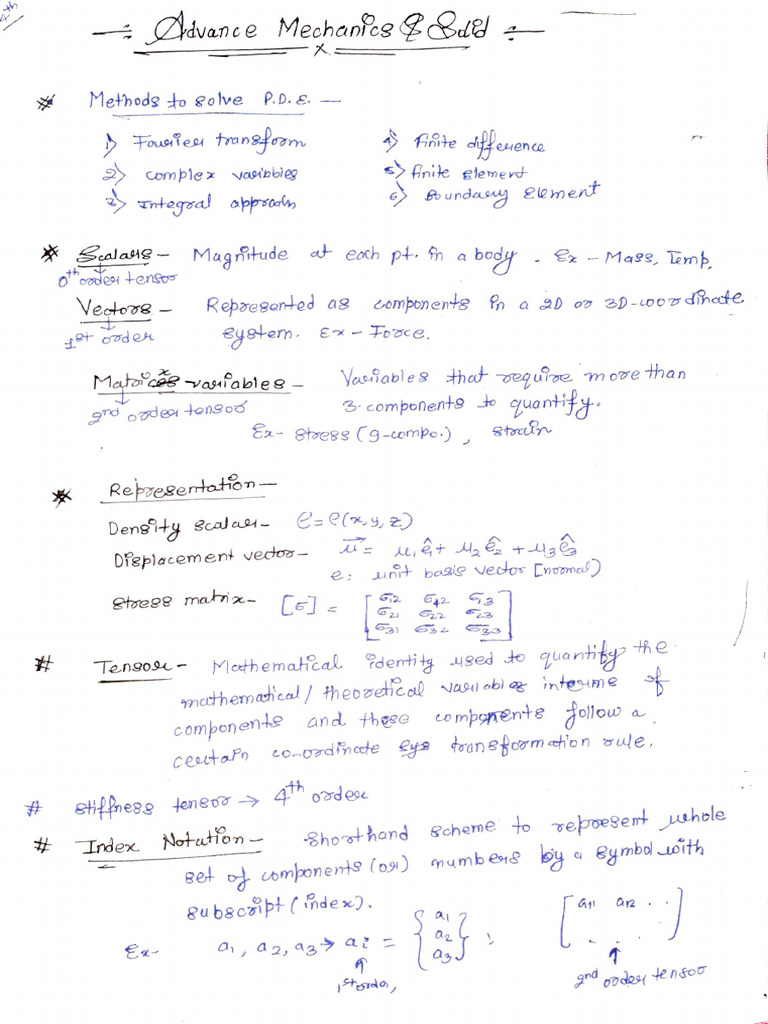 4th
Advance Mechanics of Solid
* Methods to solve P.D.E. —
1) Fourier transform 4) Finite difference
2) complex variables 5) finite element
3) Integral approach 6) Boundary Element
* Scalars - Magnitude at each pt. in a body. Ex - Mass, Temp,
0th order tensor
Vectors - Represented as components in a 2D or 3D-coordinate
1st order system. Ex - Force.
Matrix variables - Variables that require more than
2nd order tensor 3-components to quantify.
Ex- stress (9-compo.), strain
* Representation —
Density scalar - ρ = ρ(x, y, z)
Displacement vector - u⃗ = u₁ê₁ + u₂ê₂ + u₃ê₃
e: unit basis vector [normal)
stress matrix - [σ] =
σ12 σ42 σ13
σ21 σ22 σ23
σ31 σ32 σ33
# Tensor - Mathematical identity used to quantify the
mathematical/theoretical variables interms of
components and these components follow a
certain co-ordinate sys transformation rule.
# stiffness tensor → 4th order
# Index Notation - shorthand scheme to represent whole
set of components (or) numbers by a symbol with
subscript (index).
Ex- a1, a2, a3 → ai = { a1 a2 a3 } ; [ a11 a12 . . ]
1st order, 2nd order tensor